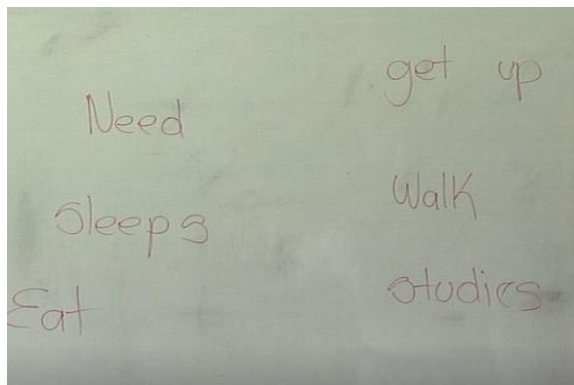 Need
Sleeps
Eat
get up
Walk
studies